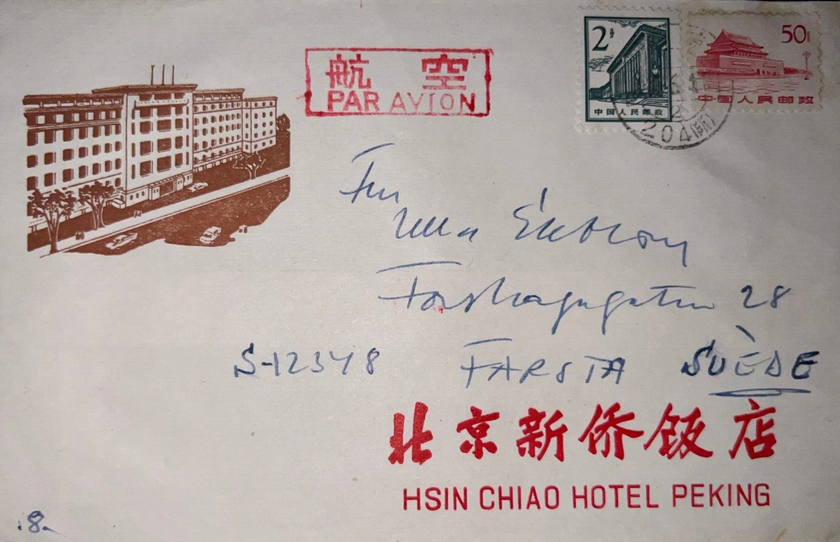 航 空
PAR AVION
2分
中国人民邮政
50f
中国人民邮政
204(支)
Fru
Ulla
28
S-12348 FARSTA SUÈDE
北京新侨饭店
HSIN CHIAO HOTEL PEKING
.8.